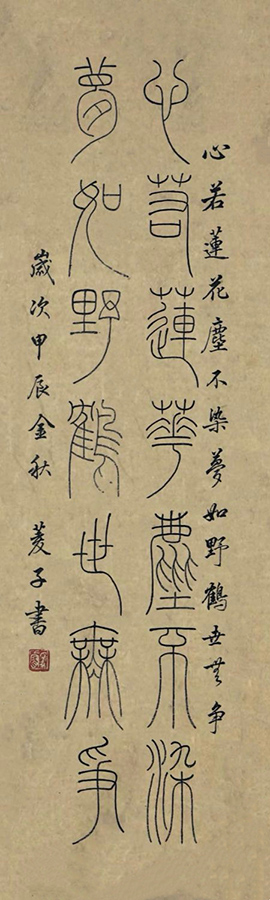 心若蓮花塵不染夢如野鶴世無争
心若蓮華塵不染
夢如野鶴世無爭
歲次甲辰金秋 菱子書